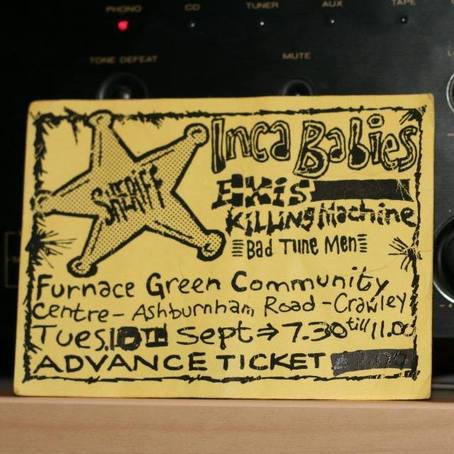 PHONO CD TUNER AUX TAPE
TONE DEFEAT MUTE
SHERIFF
Inca Babies
EXIS
KILLING Machine
Bad Tune Men
Furnace Green Community
Centre - Ashburnham Road - Crawley
Tues. 10TH Sept ⇒ 7.30 till 11.00
ADVANCE TICKET